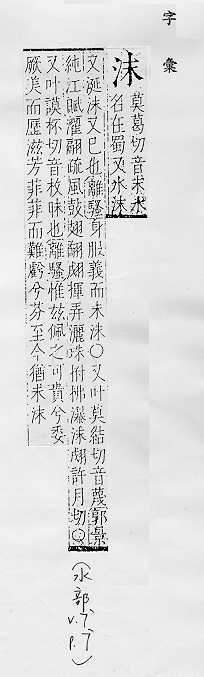 字彙
沫
莫葛切音末水
名在蜀又水沫
又涎沫又已也離騷身服義而未沫○又叶莫結切音蔑郭景
純江賦濯翮疏風鼓翅翻翽揮弄灑珠拊拂瀑沫翽許月切○
又叶謨杯切音枚昧也離騷惟茲佩之可貴兮委
厥美而歷滋芳菲菲而難虧兮芬至今猶未沫
(水部、v.7, p.7)